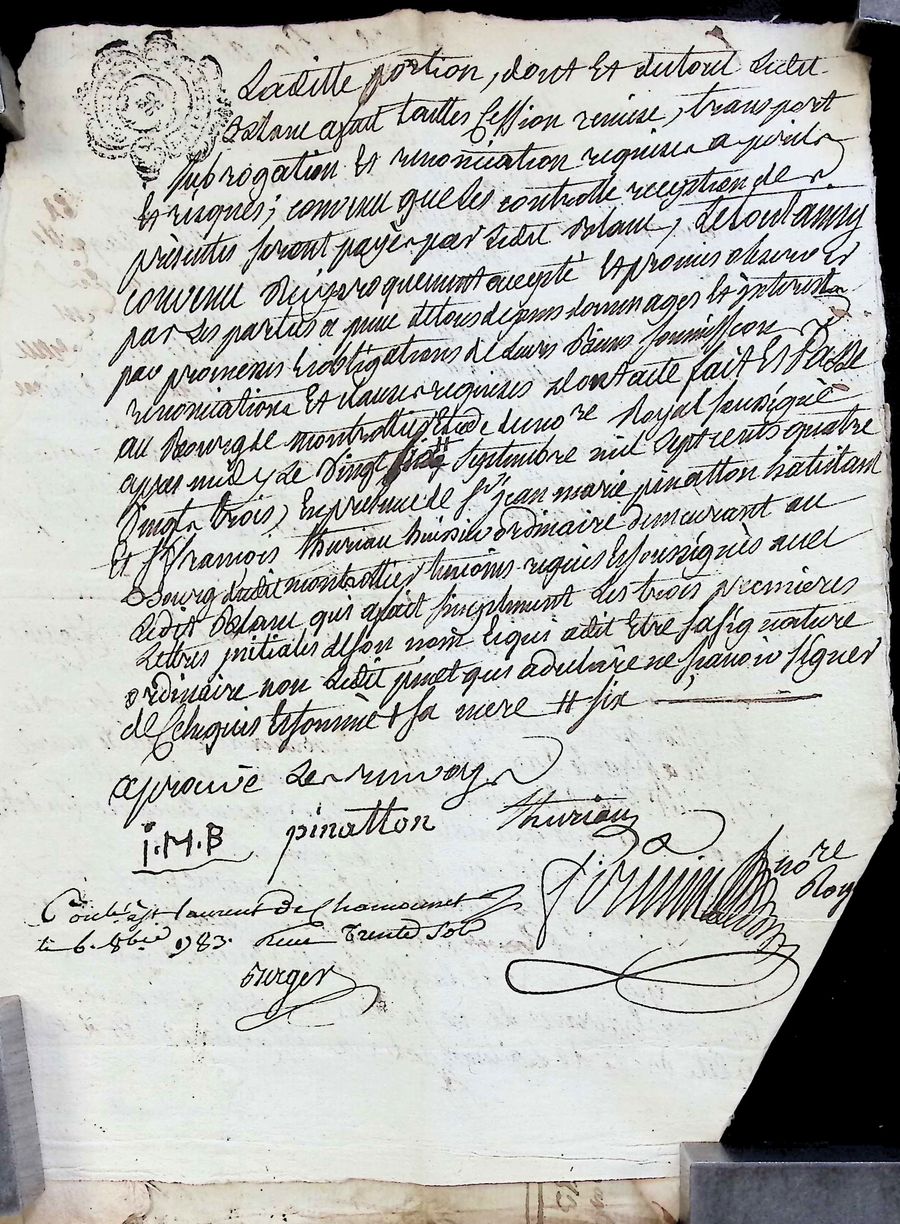 Laditte portion, dont Et dutout Ledit
Belanc a fait touttes Cession remise, transport
subrogation Et renonciation requises a perils
Et risques; convenu que Les controlle reception de
presentes seront payés par Ledit Belanc, Letout ainsy
convenu Reciproquement accepté Et promis observer
par Les parties a peine detous depens dommages Et interets
par promesses Et obligations de Leurs Biens soumission
renonciations Et clauses requises dont acte fait Et Passé
au Bourg de montrottier Etude dunore Royal soussigné
apres midy Le vingt septembre mil sept cents quatre
vingt trois, En presence de sr jean marie pinatton habitant
Et sr francois thurian huissier ordinaire demeurant au
Bourg dudit montrottier temoins requis Et soussignés avec
Ledit Belanc qui a fait simplement Les trois premieres
Lettres initiales de son nom Et qui a dit Etre sa signature
ordinaire non Ledit pinet qui a declaré ne scavoir signer
de Ce Enquis Et sommé + sa mere # six
aprouvé Les renvoys
J.M.B pinatton thurian
nore Roy
Conle a St Laurent De Chamousset
le 6. 8bre 1783. Recu Trente sols
Berger